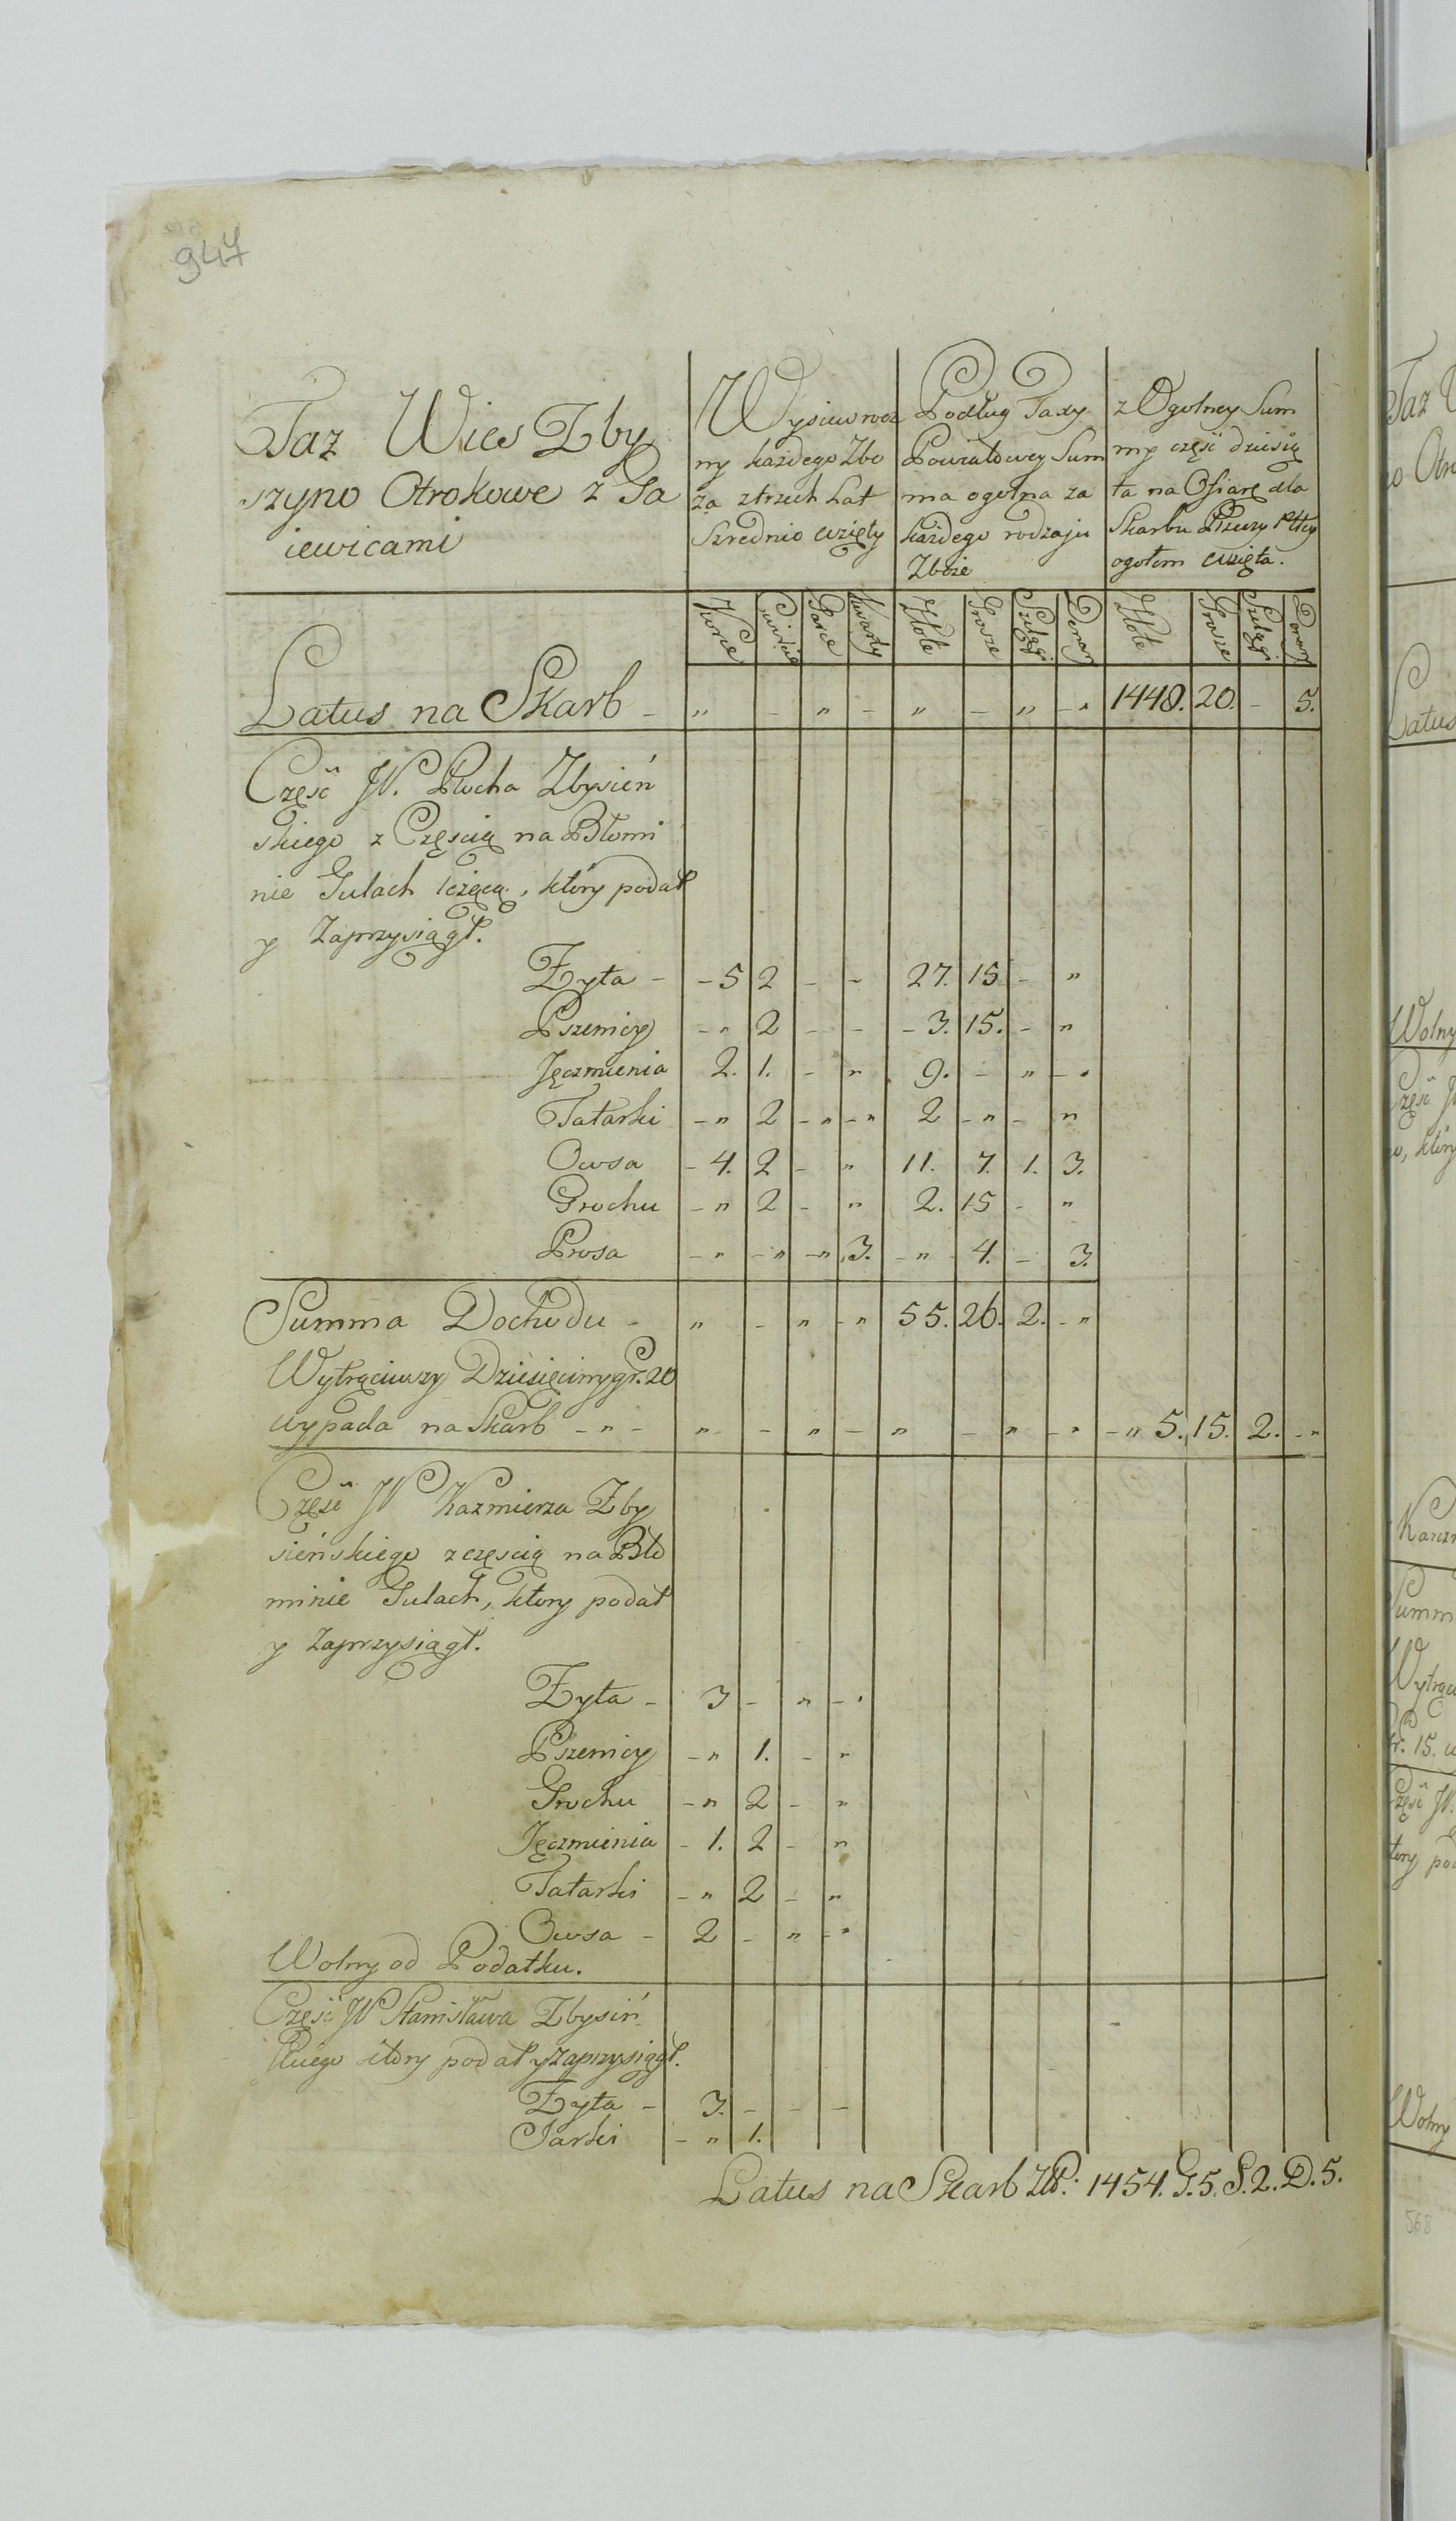 947
Taz Wies Zby
szyno Otrokowe z Ga
iewicami
Wysiew rocz
ny każdego Zbo
ża ztrzech Lat
Szrednio wzięty
Podług Taxy
Powiatowey Sum
ma ogolna za
każdego rodzaju
Zboże
z Ogolney Sum
my część dziesią
ta na Ofiarę dla
Skarbu
ogołem wzięta.
Korce Garce Kwarty Złote Grosze Szelągi Denary Złote Grosze Szelągi Denary
Latus na Skarb - „ - „ - „ - „ - „ 1448. 20. - 5.
Częsc JP. Rocha Zbysień
skiego z Częscią na Błomi
nie Gulach leżącą, który podał
y Zaprzysiągł.
Zyta - - 5 2 - - 27. 15 - „
Pszenicy - „ 2 - - - 3. 15. - „
Jęczmienia 2. 1. - „ 9. - „ - „
Tatarki - „ 2 - „ - „ 2 - „ - „
Owsa - 4. 2 - „ 11. 7. 1. 3.
Grochu - „ 2 - „ 2. 15 - „
Prosa - „ - „ - „ 3. - „ 4. - 3.
Summa Dochodu - „ - „ - „ 55. 26. 2. - „
Wytrąciwszy Dziesięciny gr. 20
wypada na Skarb - „ - „ - - „ - „ - „ - „ - „ 5. 15. 2. - „
Częsc JP Kazmierza Zby
sieńskiego z częscią na Bło
minie Gulach, ktory podał
y Zaprzysiągł.
Zyta - 3 - „ - „
Pszenicy - „ 1. - „
Grochu - „ 2 - „
Jęczmienia - 1. 2 - „
Tatarki - „ 2 - „
Owsa - 2 - „ - „
Wolny od Podatku.
Częsc JP Stanisława Zbysiń
skiego ktory podał y zaprzysiągł.
Zyta - 3. - - -
Jarki - „ 1.
Latus na Skarb Złł. 1454. G. 5. S. 2. D. 5.
Taz
Latus
Wolny
Summ
15.
Wolny
568